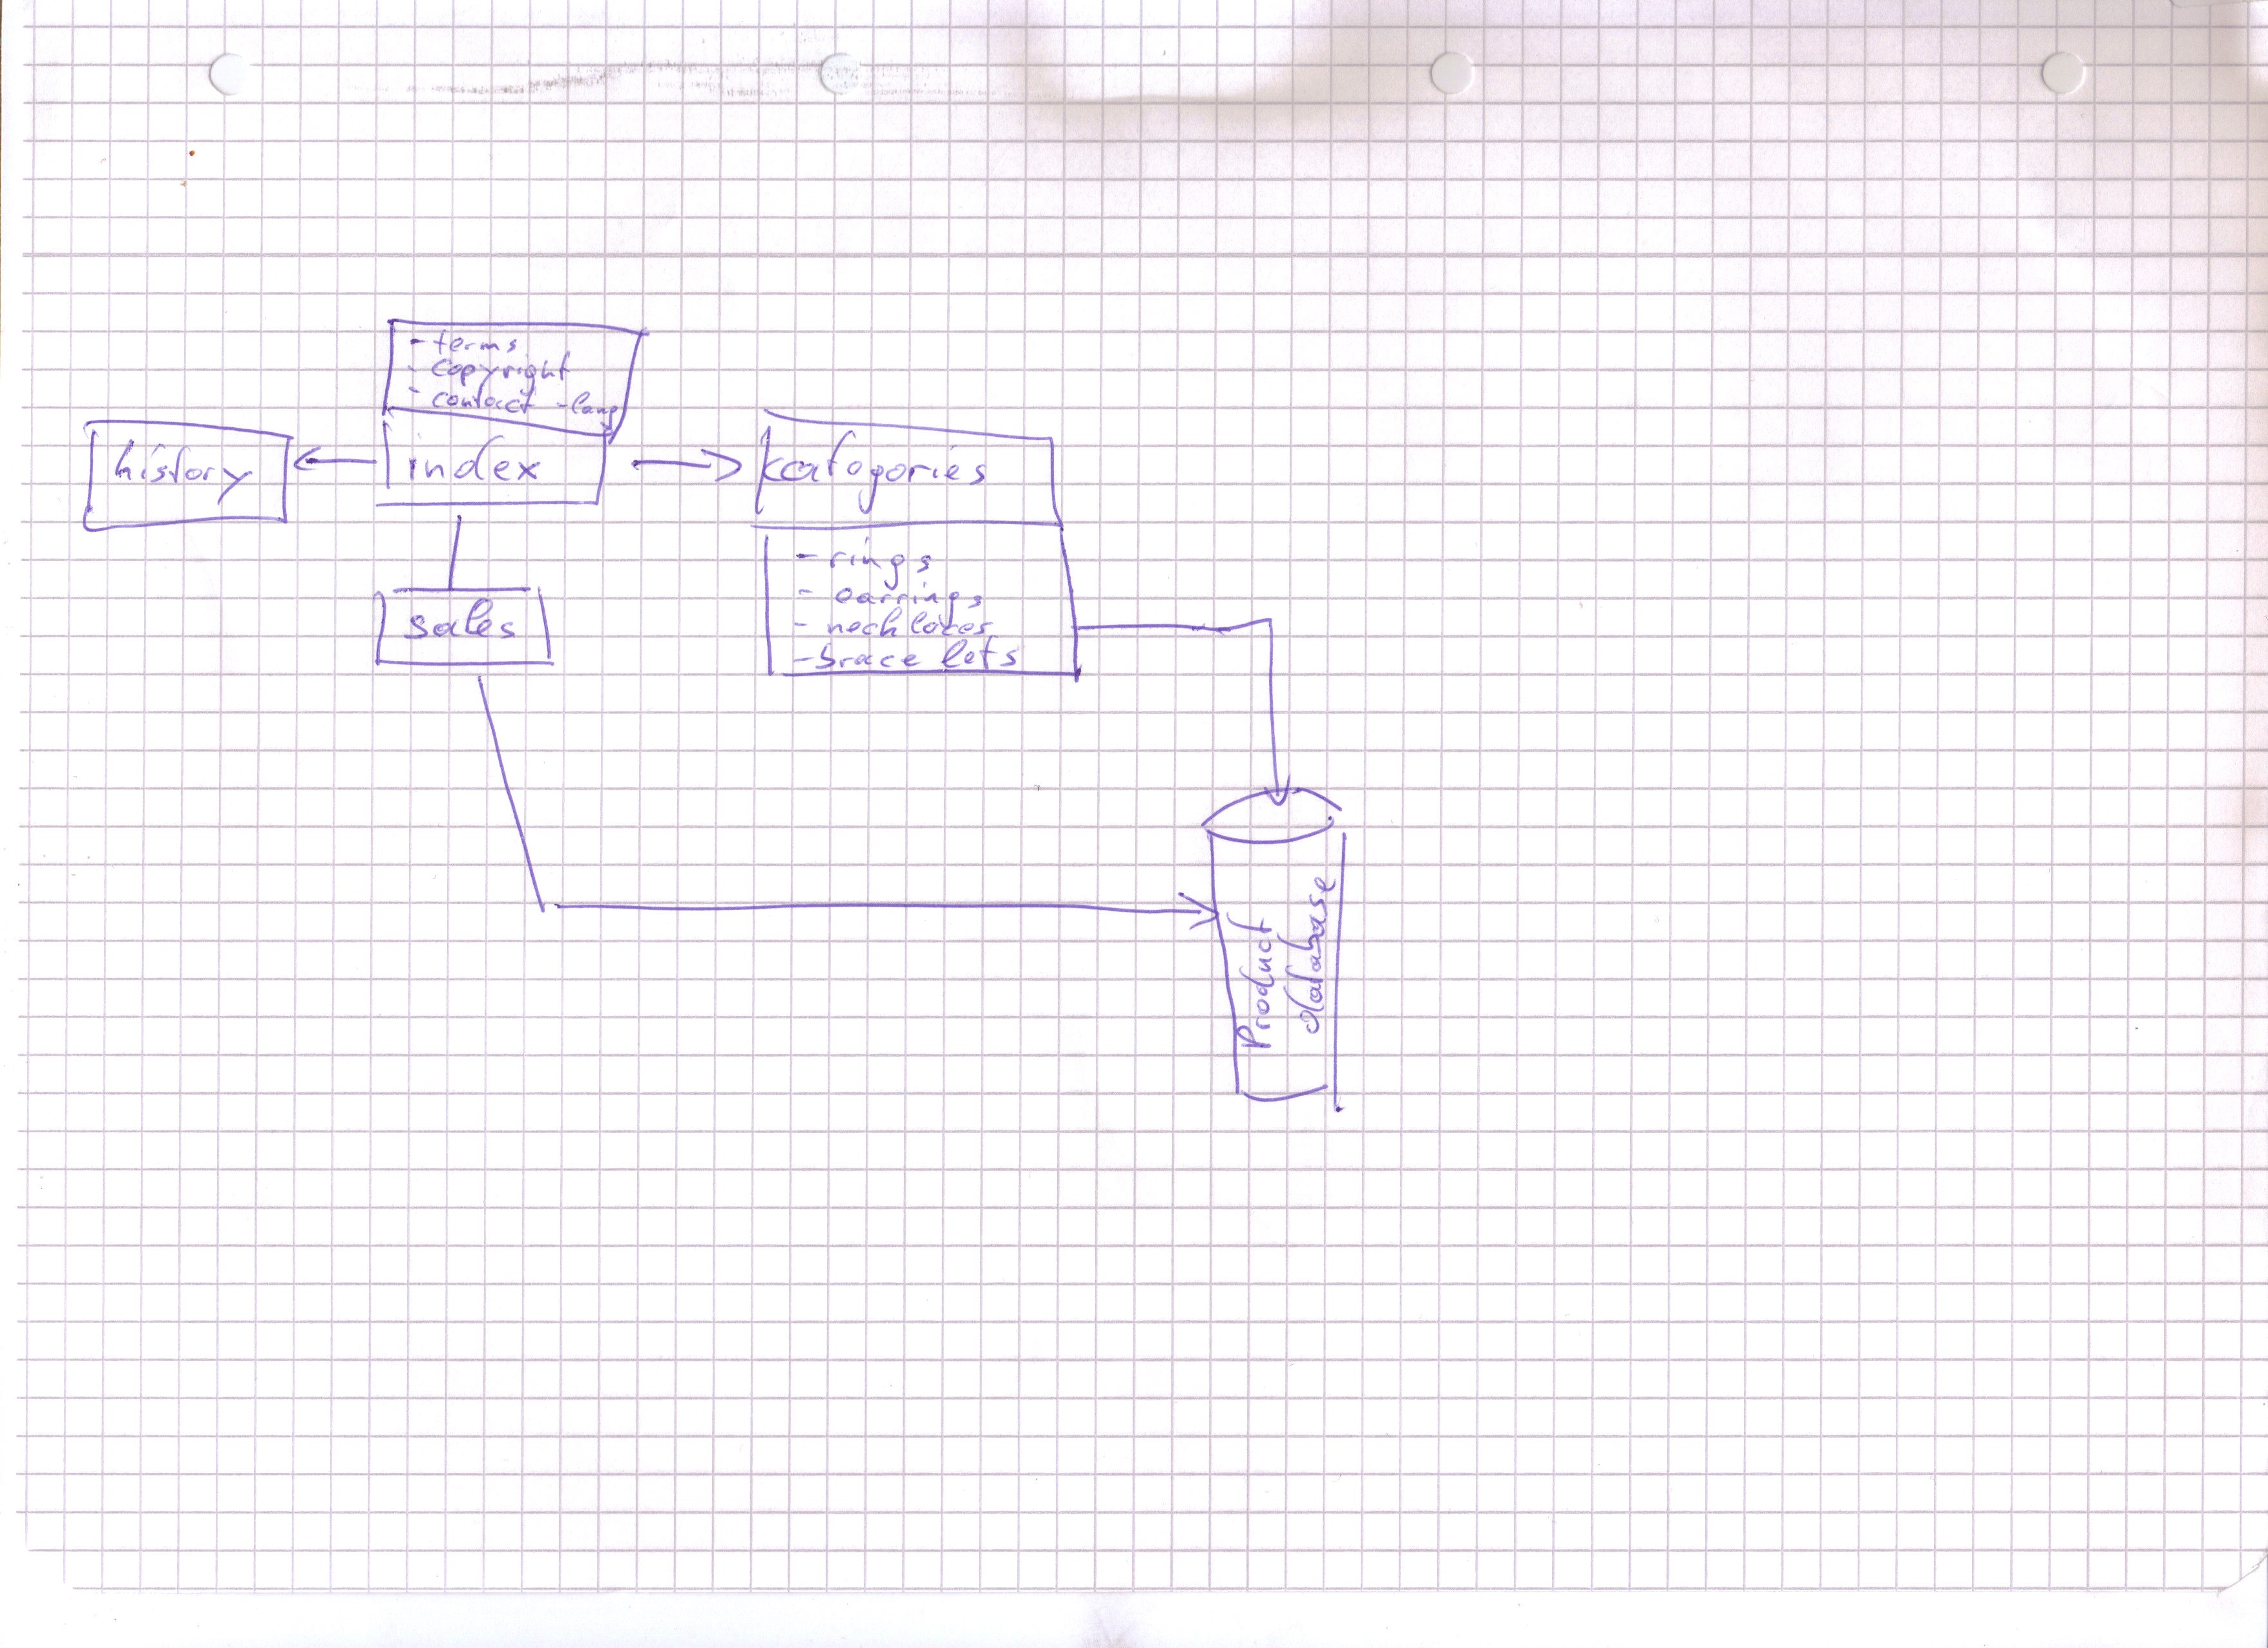 - terms
- copyright
- contact - lang
history
index
kategories
sales
- rings
- earrings
- necklaces
- bracelets
Product
database